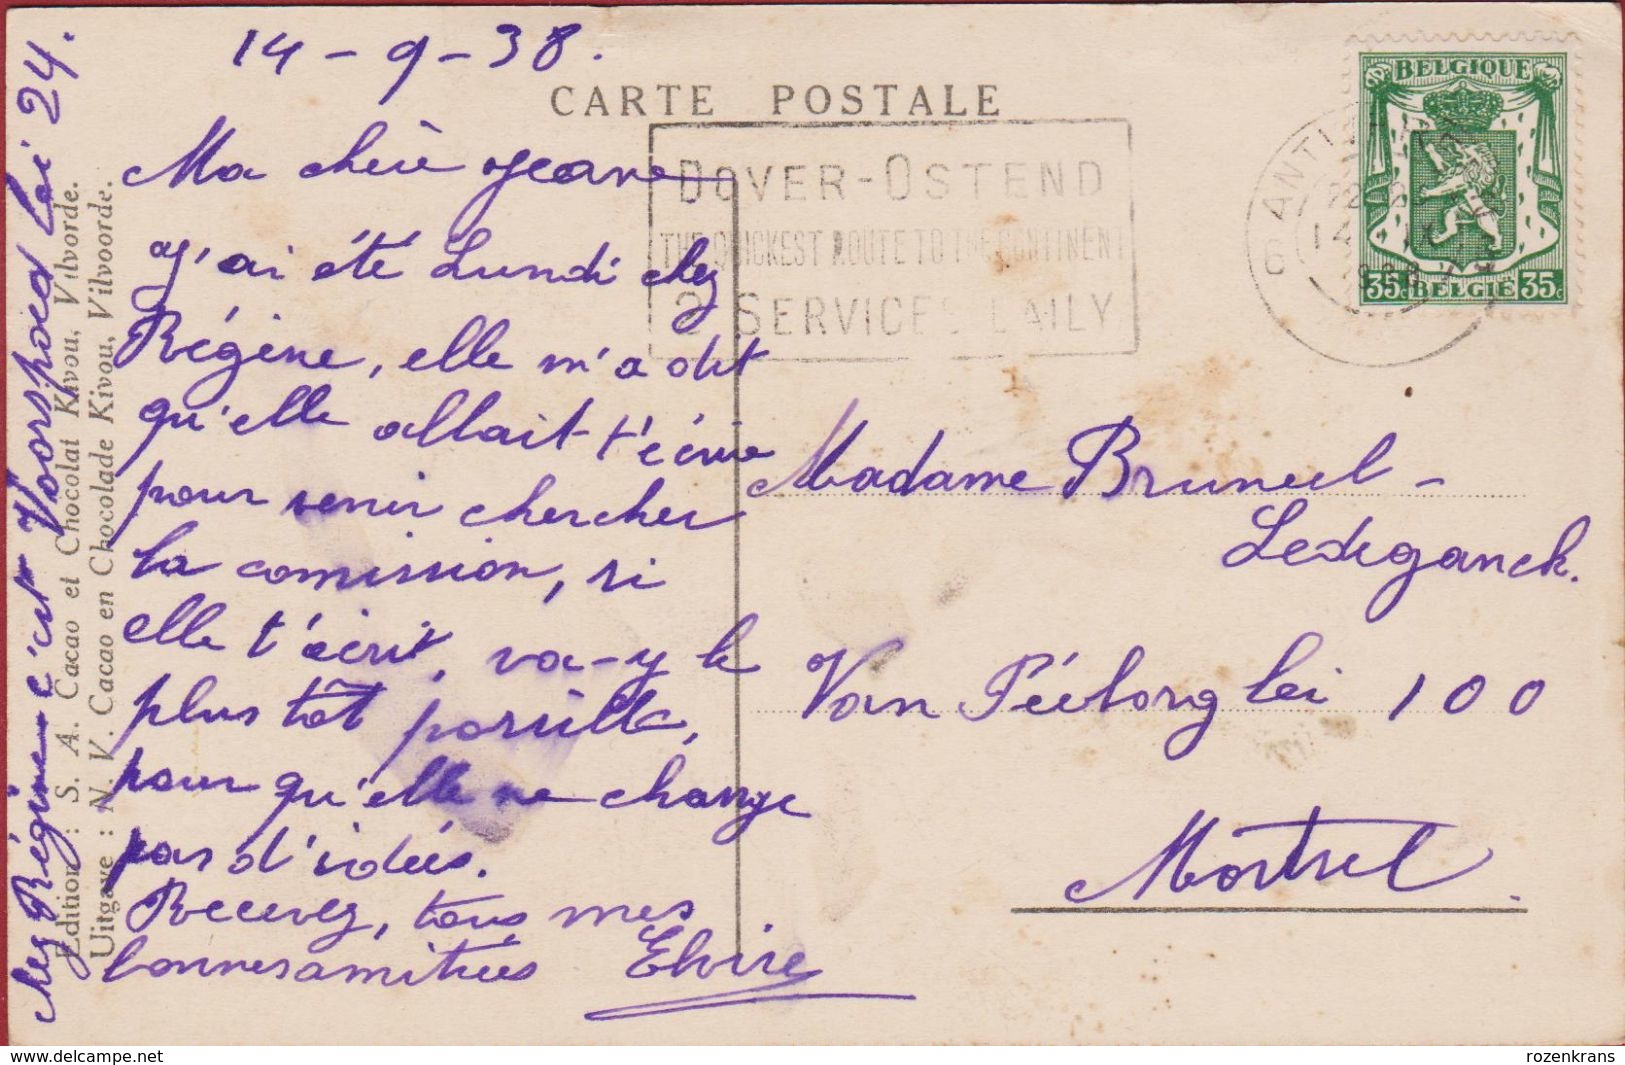 14-9-38.
CARTE POSTALE
Ma chère Jeane
j'ai été Lundi chez
Régine, elle m'a dit
qu'elle allait t'écrire
pour venir chercher
la comission, si
elle t'écrit, va-y le
plus tôt possible,
pour qu'elle ne change
pas d'idées.
Recevez, tous mes
bonnes amitiées Elvire
chez Régine c'est Voorspoed lei 24.
Edition : S. A. Cacao et Chocolat Kivou, Vilvorde.
Uitgave : N. V. Cacao en Chocolade Kivou, Vilvoorde.
DOVER-OSTEND
THE QUICKEST ROUTE TO THE CONTINENT
SERVICES DAILY
BELGIQUE
35c BELGIË 35c
6 ANT
14 IX
1938
Madame Bruneel-
Ledeganck.
Van Péelborg lei 100
Mortsel.
www.delcampe.net
rozenkrans